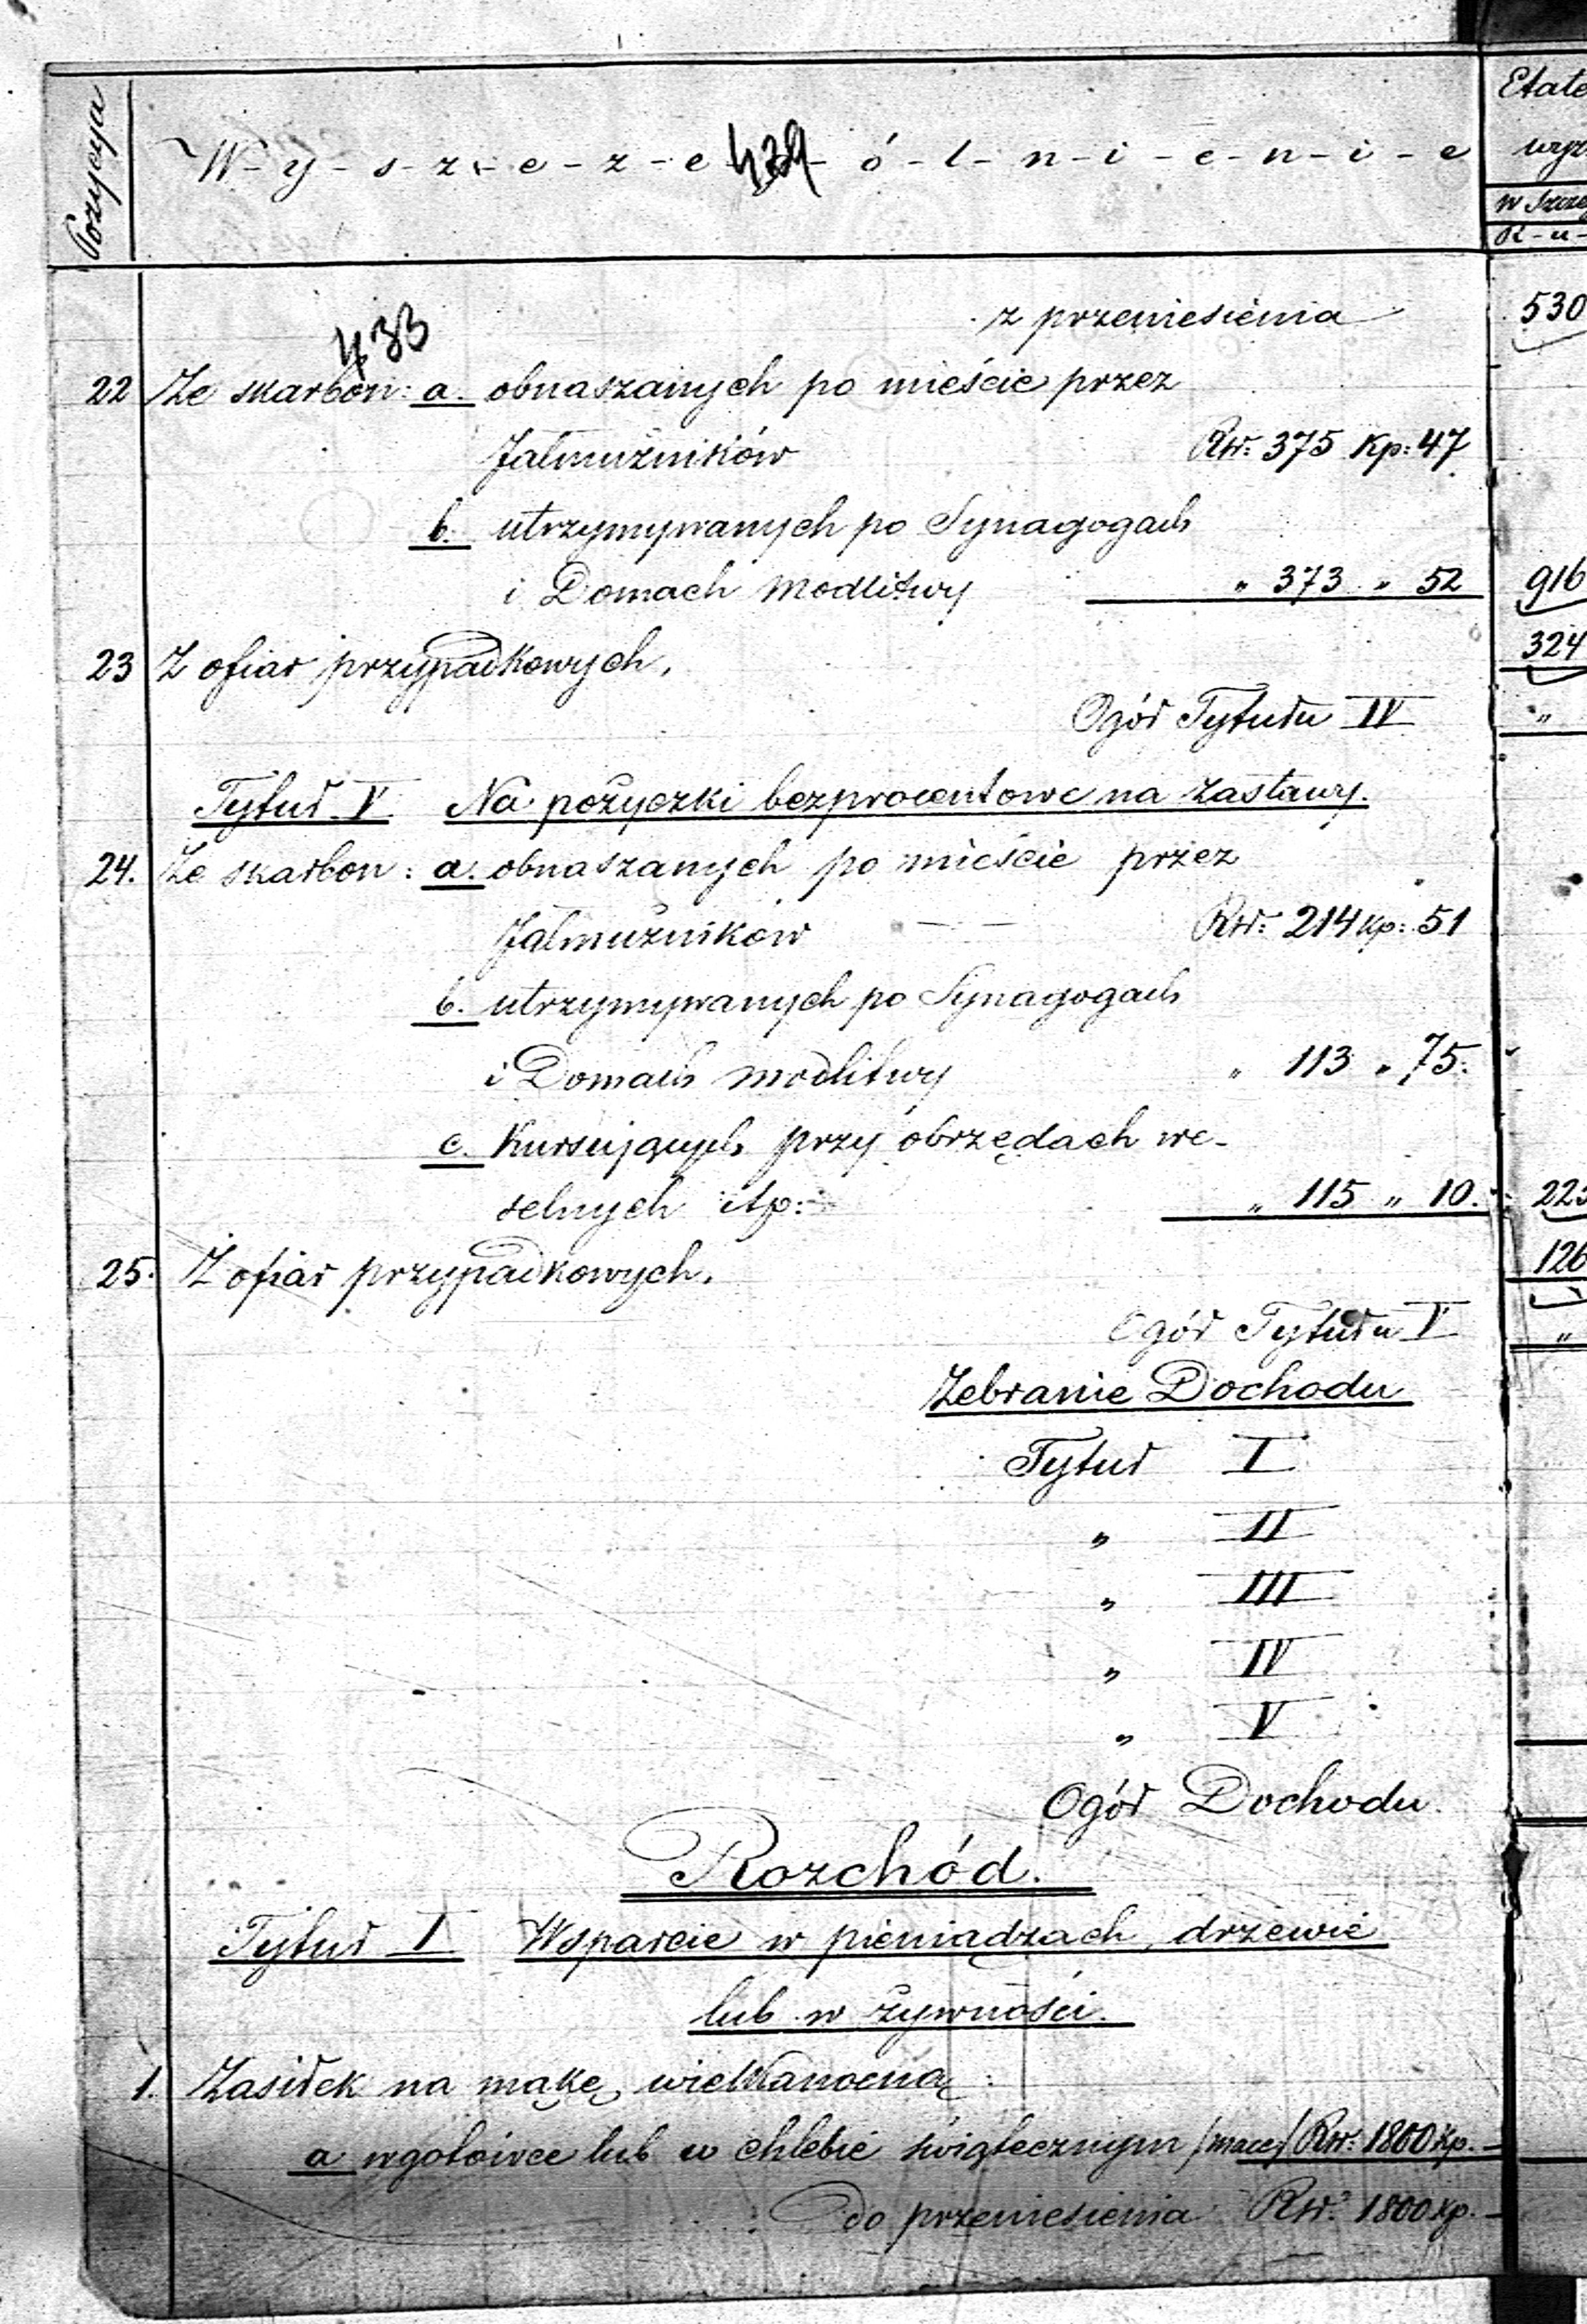 Pozycya
W-y-s-z-c-z-e-ó-l-n-i-e-n-i-e
Etate
439
wyr
w Szcze
R-u-
z przeniesienia 530
433
22 Ze skarbon: a. obnaszanych po mieście przez
Jałmużników Rsr: 375 Kp: 47
b. utrzymywanych po Synagogach
i Domach modlitwy " 373 " 52 916
23 Z ofiar przypadkowych. 324
Ogół Tytułu IV "
Tytuł V Na pożyczki bezprocentowe na zastawy.
24. Ze skarbon: a. obnaszanych po mieście przez
Jałmużników — — Rsr: 214 Kp: 51
b. utrzymywanych po Synagogach
i Domach modlitwy " 113 " 75.
c. Kursujących przy obrzędach we-
selnych itp: " 115 " 10. 223
25. Z ofiar przypadkowych. 126
Ogół Tytułu V "
Zebranie Dochodu
Tytuł I
" II
" III
" IV
" V
Ogół Dochodu.
Rozchód.
Tytuł I Wsparcie w pieniądzach, drzewie
lub w żywności.
1. Zasiłek na mąkę wielkanocną:
a w gotówce lub w chlebie świątecznym /mace/ Rsr: 1800 Kp. –
do przeniesienia Rsr: 1800 Kp. –